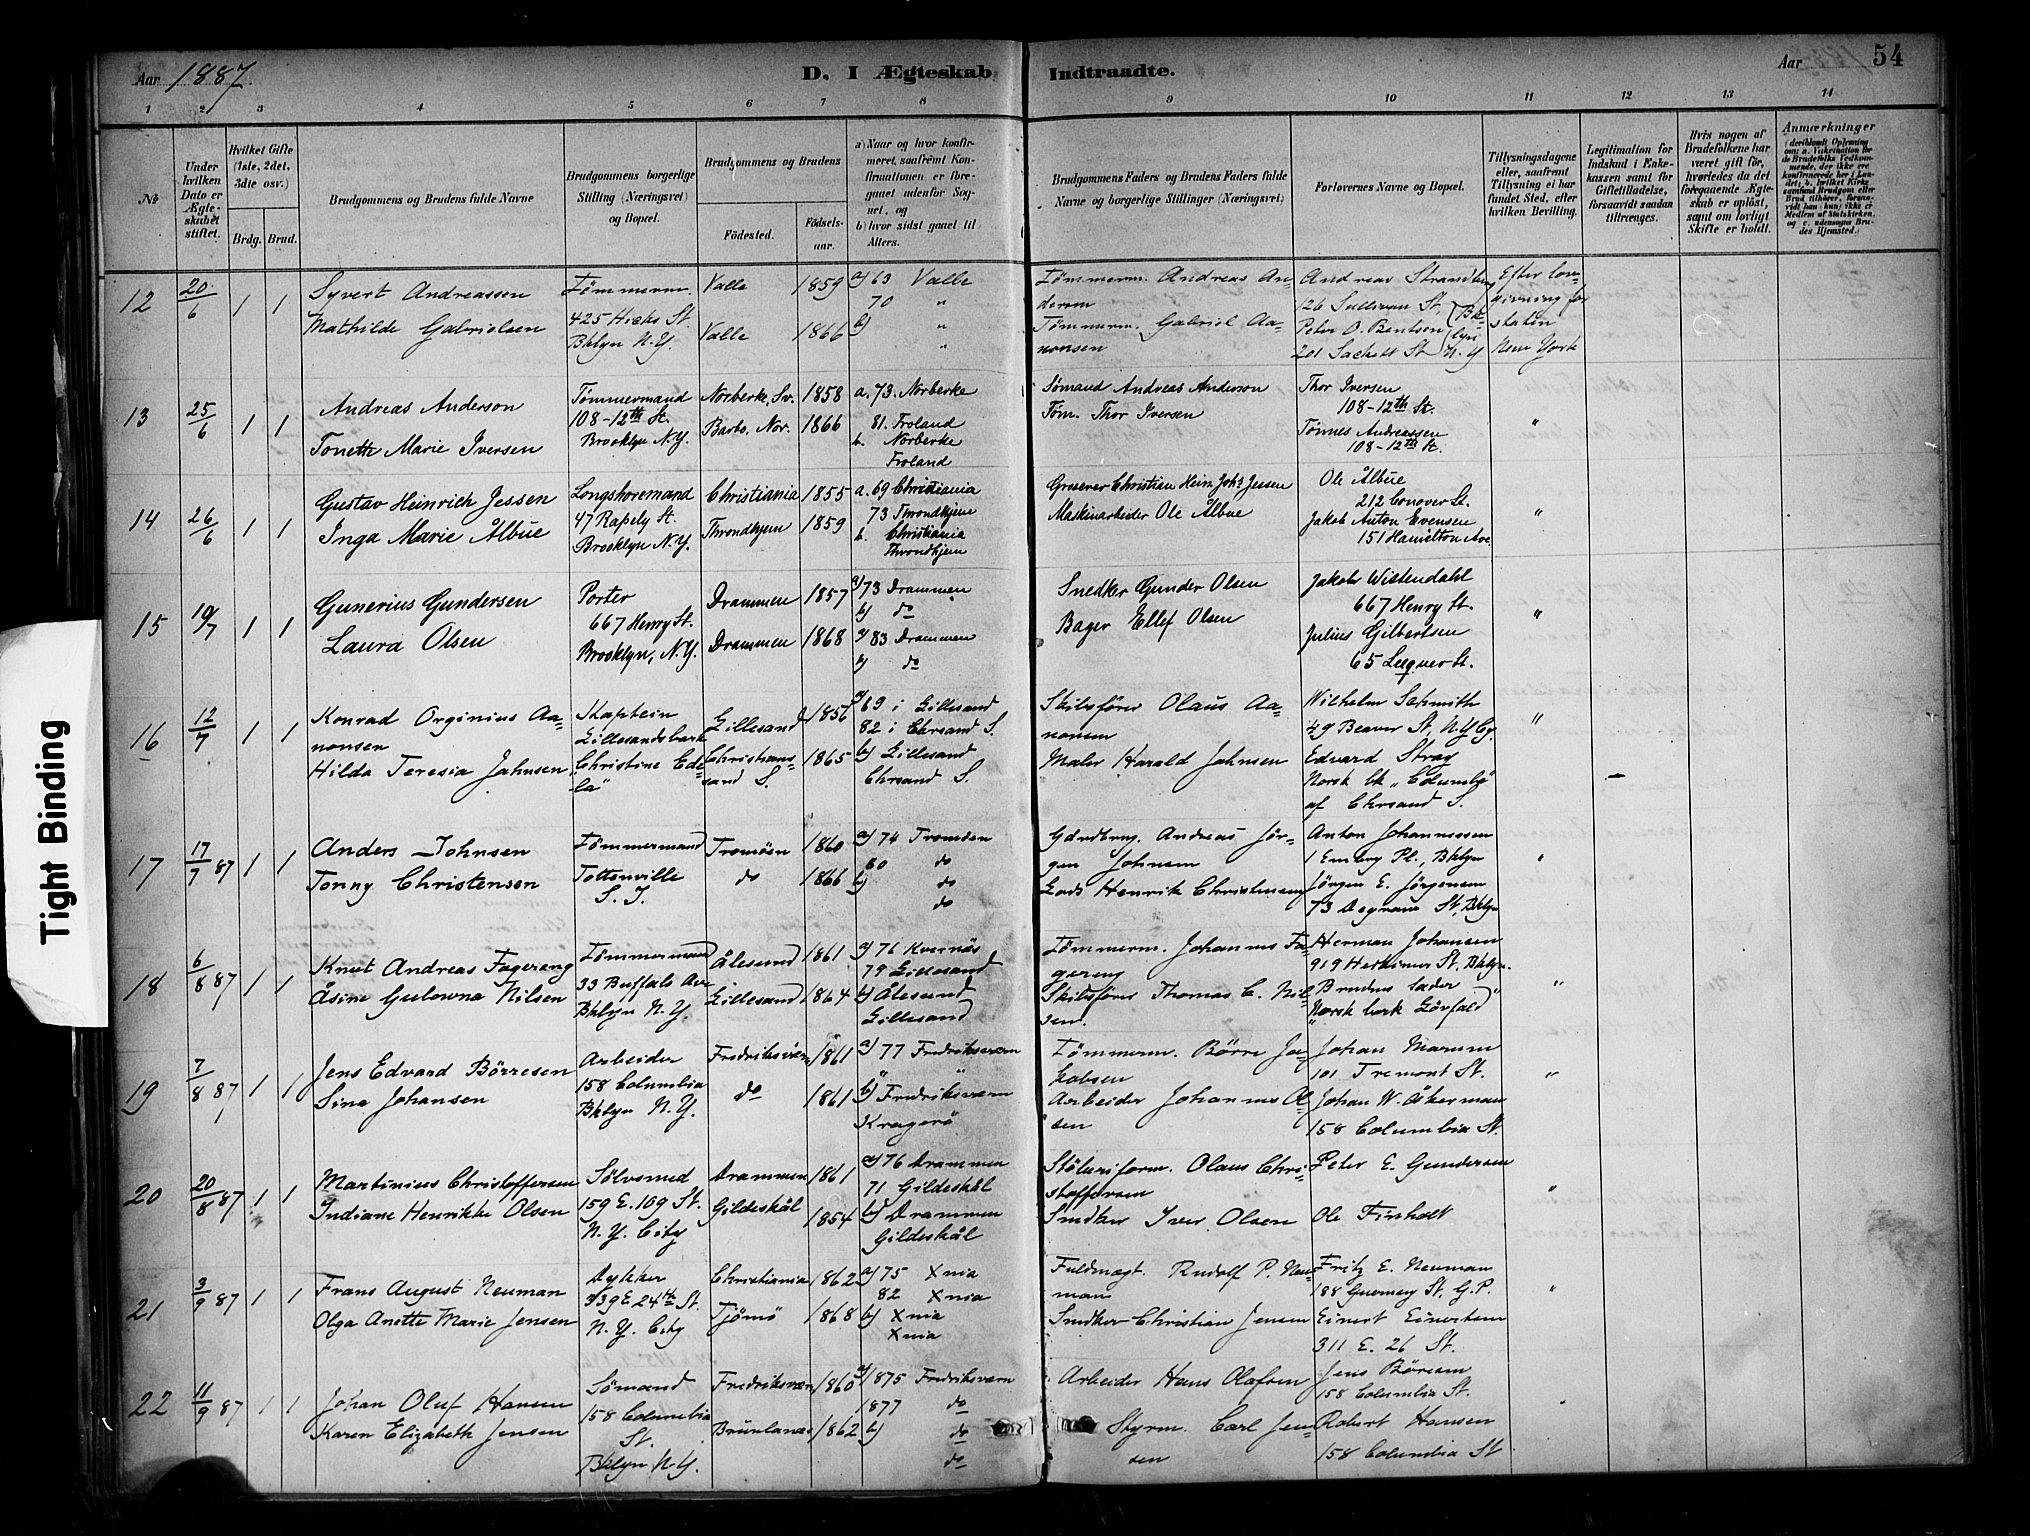 Aar 1887.
D. I Ægteskab Indtraadte.
Aar 54
1 2 3 4 5 6 7 8 9 10 11 12 13 14
No
Under hvilken Dato er Ægteskabet stiftet.
Hvilket Gifte (1ste, 2det, 3die osv.)
Brdg. Brud.
Brudgommens og Brudens fulde Navne
Brudgommens borgerlige Stilling (Næringsvei) og Bopæl.
Brudgommens og Brudens
Fødested.
Fødselsaar.
a) Naar og hvor konfirmeret, saafremt Konfirmationen er foregaaet udenfor Sognet, og
b) hvor sidst gaaet til Alters.
Brudgommens Faders og Brudens Faders fulde Navne og borgerlige Stillinger (Næringsvei)
Forlovernes Navne og Bopæl.
Tillysningsdagene eller, saafremt Tillysning ei har fundet Sted, efter hvilken Bevilling.
Legitimation for Indskud i Enkekassen samt for Giftetilladelse, forsaavidt saadan tiltrænges.
Hvis nogen af Brudefolkene har været gift før, hvorledes da det foregaaende Ægteskab er opløst, samt om lovligt Skifte er holdt.
Anmærkninger
12 20/6 1 1
Syvert Andreassen
Mathilde Gabrielsen
Tømmerm.
425 Hicks St.
Bklyn N.Y.
Valle 1859
Valle 1866
a) 63 Valle
70 "
b) "
"
Tømmerm. Andreas An=
derson
Tømmerm. Gabriel Aa=
nonsen
Andreas Strandberg
126 Sullivan St.
Peter O. Bentson
201 Sackett St
Bklyn N.Y.
Efter Lov=
givning for
staten
New York
13 25/6 1 1
Andreas Anderson
Tonette Marie Iversen
Tømmermand
108-12th St.
Brooklyn N.Y.
Norberke, Sv. 1858
Barbo, Nor. 1866
a. 73. Norberke
81. Froland
b. Norberke
Froland
Sømand Andreas Anderson
Tøm. Thor Iversen
Thor Iversen
108-12th St.
Tønnes Andreassen
108-12th St.
"
14 26/6 1 1
Gustav Heinrich Jessen
Inga Marie Ålbue
Longshoremand
47 Rapely St.
Brooklyn N.Y.
Christiania 1855
Throndhjem 1859
a. 69 Christiania
73 Throndhjem
b. Christiania
Throndhjem
Graever Christian Hein. Johs Jessen
Maskinarbeider Ole Ålbue
Ole Ålbue
212 Conover St.
Jakob Anton Evensen
151 Hamilton Ave.
"
15 10/7 1 1
Gunerius Gundersen
Laura Olsen
Porter
667 Henry St.
Brooklyn, N.Y.
Drammen 1857
Drammen 1868
a) 73 Drammen
b) do
a) 83 Drammen
b) do
Snedker Gunder Olsen
Bager Ellef Olsen
Jakob Wistendahl
667 Henry St.
Julius Gilbertsen
65 Luquer St.
"
16 12/7 1 1
Konrad Orginius Aa=
nonsen
Hilda Teresia Jahnsen
Skaptein
Lillesandsbark
"Christine Ede=
la"
Lillesand 1856
Christians=
sand S. 1865
a) 69 i Lillesand
82 i Chrsand S.
b) Lillesand
Chrsand S.
Skibsfører Olaus Aa=
nonsen
Maler Harald Jahnsen
Wilhelm Schmith
49 Beaver St, N.Y Cy.
Edvard Stray
Norsk bk "Columbo"
af Chrsand S.
"
17 17/7 87 1 1
Anders Johnsen
Tonny Christensen
Tømmermand
Tottenville
S. I.
Tromøen 1860
do 1866
a) 74 Tromøen
80 do
b) do
do
Gårdbrug. Andreas Jör=
gen Johnsen
Lods Henrik Christensen
Anton Johannessen
1 Emery Pl., Bklyn
Jörgen E. Jörgensen
73 Degraw St, Bklyn
"
18 6/8 87 1 1
Knut Andreas Fagereng
Åsine Gulowna Nilsen
Tømmermand
33 Buffalo Av.
Bklyn N.Y.
Ålesund 1861
Lillesand 1864
a) 76 Kvernäs
79 Lillesand
b) Ålesund
Lillesand
Tømmerm. Johannes Fa=
gereng
Skibsfører Thomas C. Nil=
sen.
Herman Johansen
919 Herkimer St, Bklyn.
Brudens fader
Norsk bark
"
19 7/8 87 1 1
Jens Edvard Börresen
Sina Johansen
Arbeider
158 Columbia
Bklyn N.Y.
Fredriksvärn 1861
do 1861
a) 77 Fredriksværn
"
b) Fredriksværn
Kragerö
Tømmerm. Börre Ja=
kobsen
Arbeider Johannes Ol=
sen
Johan Marum
101 Tremont St.
Johan W. Åkerman
158 Columbia St.
"
20 20/8 87 1 1
Martinius Christoffersen
Indiane Henrikke Olsen
Sölvsmed
159 E. 109 St.
N.Y. City
Drammen 1861
Gildeskål 1854
a) 76 Drammen
71 Gildeskål
b) Drammen
Gildeskål
Støberiform. Olaus Chri=
stoffersen
Snedker Iver Olsen
Peter E. Gundersen
Ole Finholt
"
21 3/9 87 1 1
Frans August Neuman
Olga Anette Marie Jensen
Dykker
339 E. 24th St.
N.Y. City
Christiania 1862
Tjömö 1868
a) 75 Xnia
82 Xnia
b) Xnia
Xnia
Fuldmægt. Rudolf P. Neu=
man
Snedker Christian Jensen
Fritz E. Neuman
188 Guernsey St. G.P.
Einert Einertsen
311 E. 26 St.
"
22 11/9 87 1 1
Johan Oluf Hansen
Karen Elizabeth Jensen
Sömand
158 Columbia
St.
Bklyn N.Y.
Fredriksværn 1860
Brunlanæs 1862
a) 1875 Fredriksværn
1877 do
b) do
do
Arbeider Hans Olafsen
Styrm. Carl Jen=
sen
Jens Börresen
158 Columbia St.
Robert Hansen
158 Columbia St
"
Tight Binding